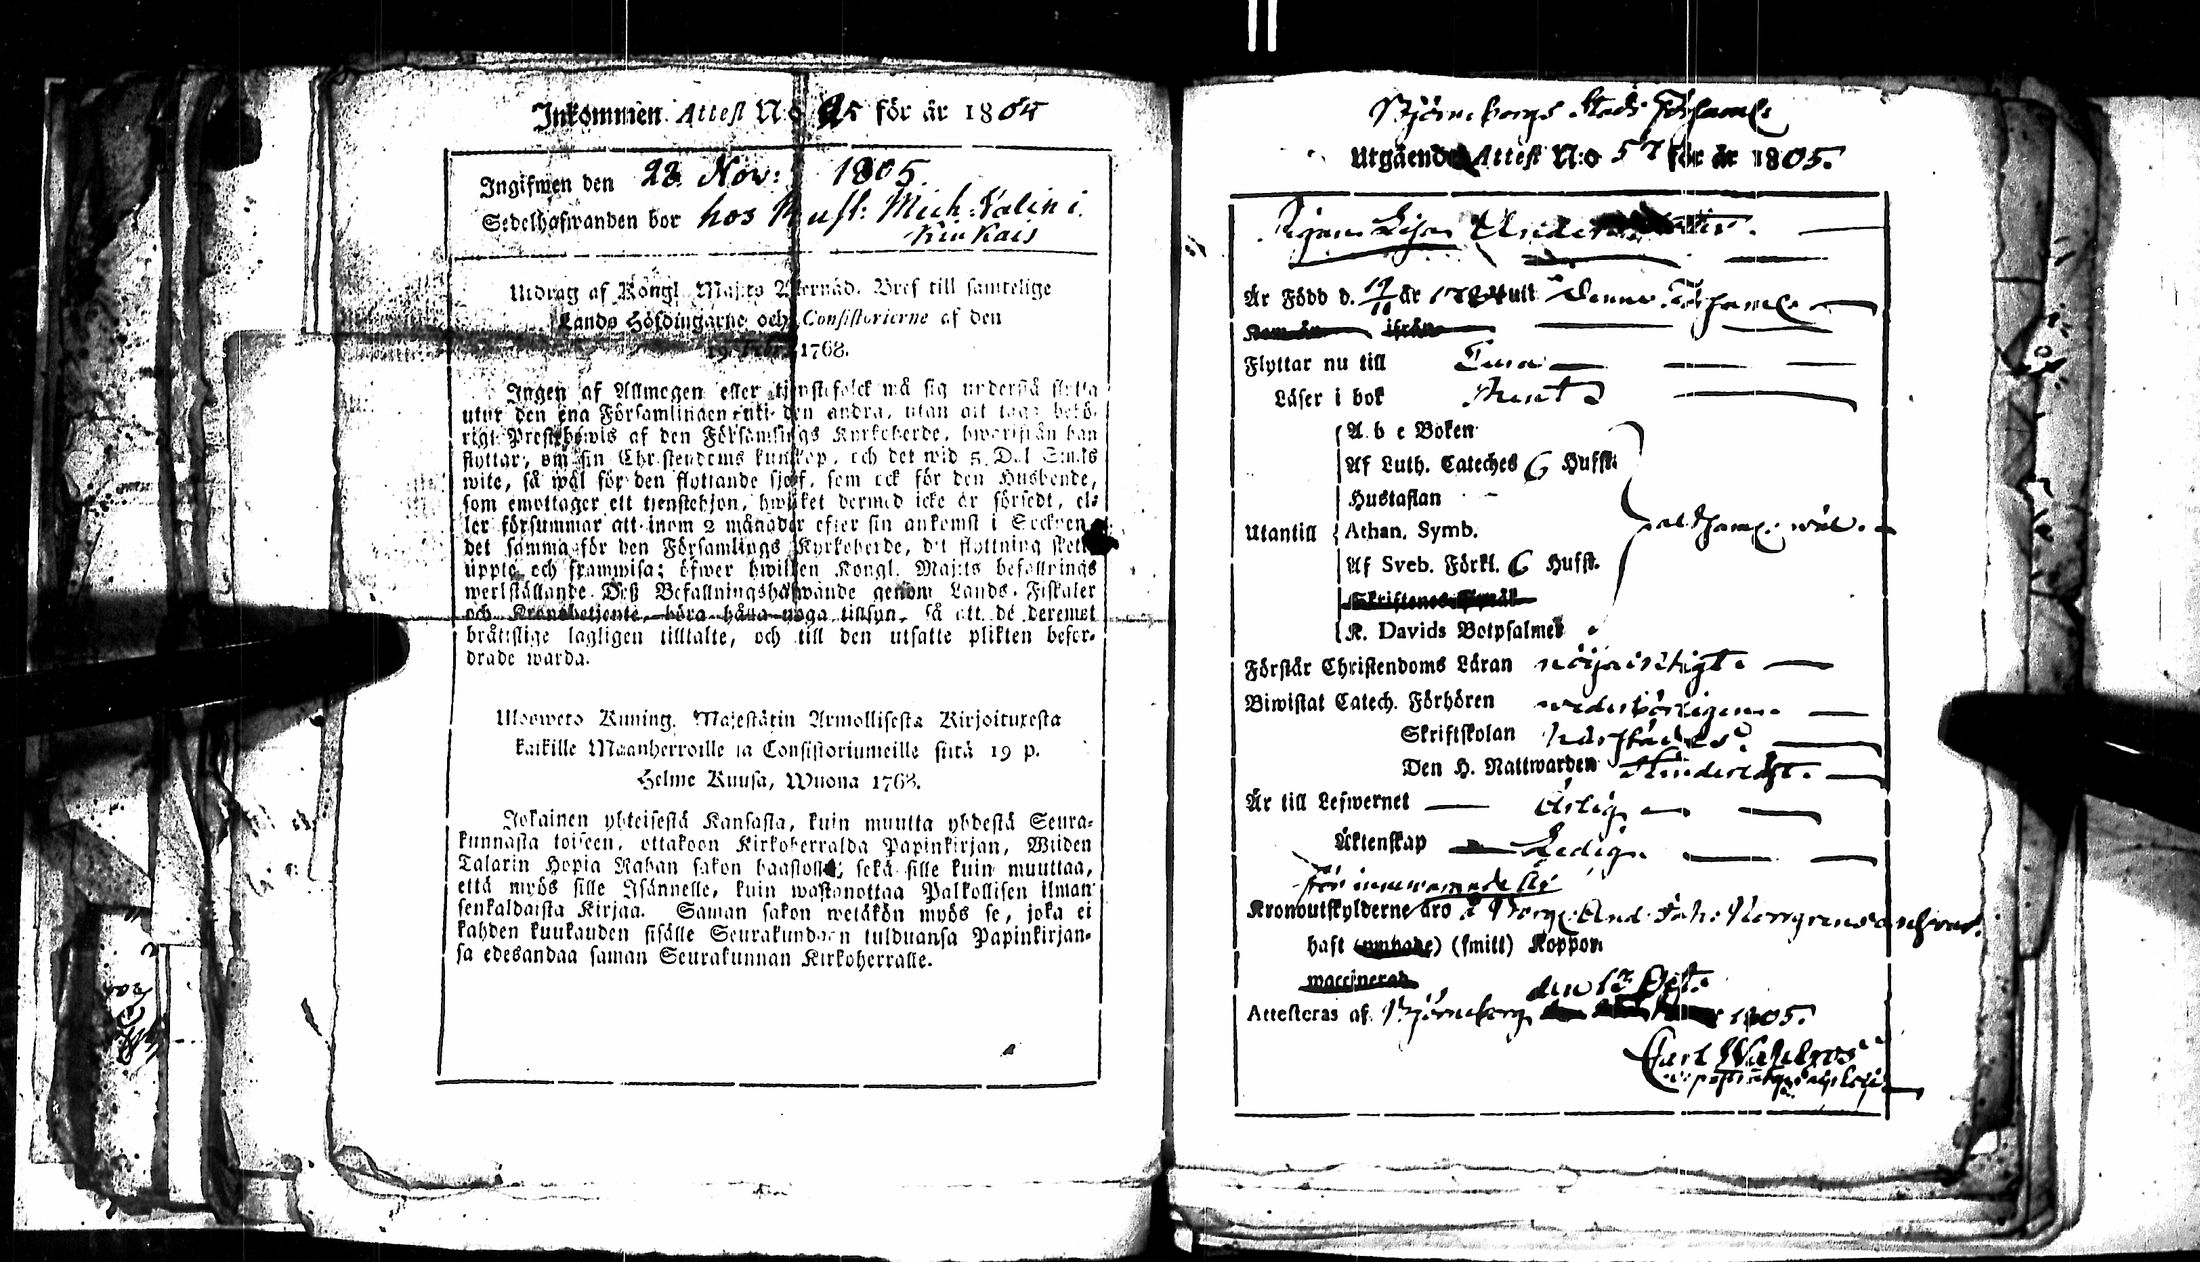 Inkommen Attest N:o 25 för år 1805
Ingifwen den 28 Nov: 1805.
Sedelhafwanden bor hos Rust: Mich: Valin i
Kiukais
Utdrag af Kongl. Maj:ts Allernåd. Bref till samtelige
Lands Höfdingarne och Consistorierne af den
19. Febr. 1768.
Ingen af Allmogen eller tjenstefolck må sig understå flytta
utur den ena Församlingen enti den andra, utan att taga behö-
rigt Prestebewis af den Församlings Kyrkoherde, hwarifrån han
flyttar, om sin Christendoms kunskap, och det wid 5. Dal. Smts
wite, så wäl för den flyttande sjelf, som ock för den Husbonde,
som emottager ett tjenstehjon, hwilket dermed icke är försedt, el-
ler försummar att inom 2 månader efter sin ankomst i Socknen
det samma för den Församlings Kyrkoherde, dit flyttning skett
uppte och framwisa; öfwer hwilken Kongl. Maj:ts befallnings
werkställande Deß Befallningshafwande genom Lands-Fiskaler
och Kronobetjente böra hålla noga tillsyn, så att de deremot
brätislige lagligen tilltalte, och till den utsatte plikten befor-
drade warda.
Uloswero Kuning. Majestätin Armollisesta Kirjoituxesta
kaikille Maanherroille ja Consistoriumeille siitä 19 p.
Helme Kuusa, Wuona 1768.
Jokainen yhteisestä Kansasta, kuin muutta yhdestä Seura-
kunnasta toiseen, ottakoon Kirkoherralda Papinkirjan, Wiiden
Talarin Hopia Rahan sakon haastolla, sekä sille kuin muuttaa,
että myös sille Isännelle, kuin wastanottaa Palkollisen ilman
senkaldaista Kirjaa. Saman sakon wetäkön myös se, joka ei
kahden kuukauden sisälle Seurakundaan tulduansa Papinkirjan-
sa edesandaa saman Seurakunnan Kirkoherralle.
Björneborgs Stads Församl:
Utgående Attest N:o 57 för år 1805.
Pigan Lisa Anders
Är Född d. 19/11 år 17 uti denna Församl.
Kom år ifrån
Flyttar nu till Eura
Läser i bok
A b c Boken
Af Luth. Cateches 6 Hufst.
Hustaflan
Utantill Athan. Symb.
Af Sveb. Förkl. 6 Hufst.
Skriftenes Språk
K. Davids Botpsalmer
wäl.
Förstår Christendoms Läran nöjaktigt.
Biwistat Catech. Förhören wederbörligen.
Skriftskolan
Den H. Nattwarden
Är till Lefwernet Ärlig
Äktenskap Ledig.
för innewarande år
Kronoutskylderne äro i Borg. And. Joh: Norrgrens
haft (ympade) (smitt) Koppor.
waccinerad
den 12 Oct.
Attesteras af. Björneborg 1805.
Carl